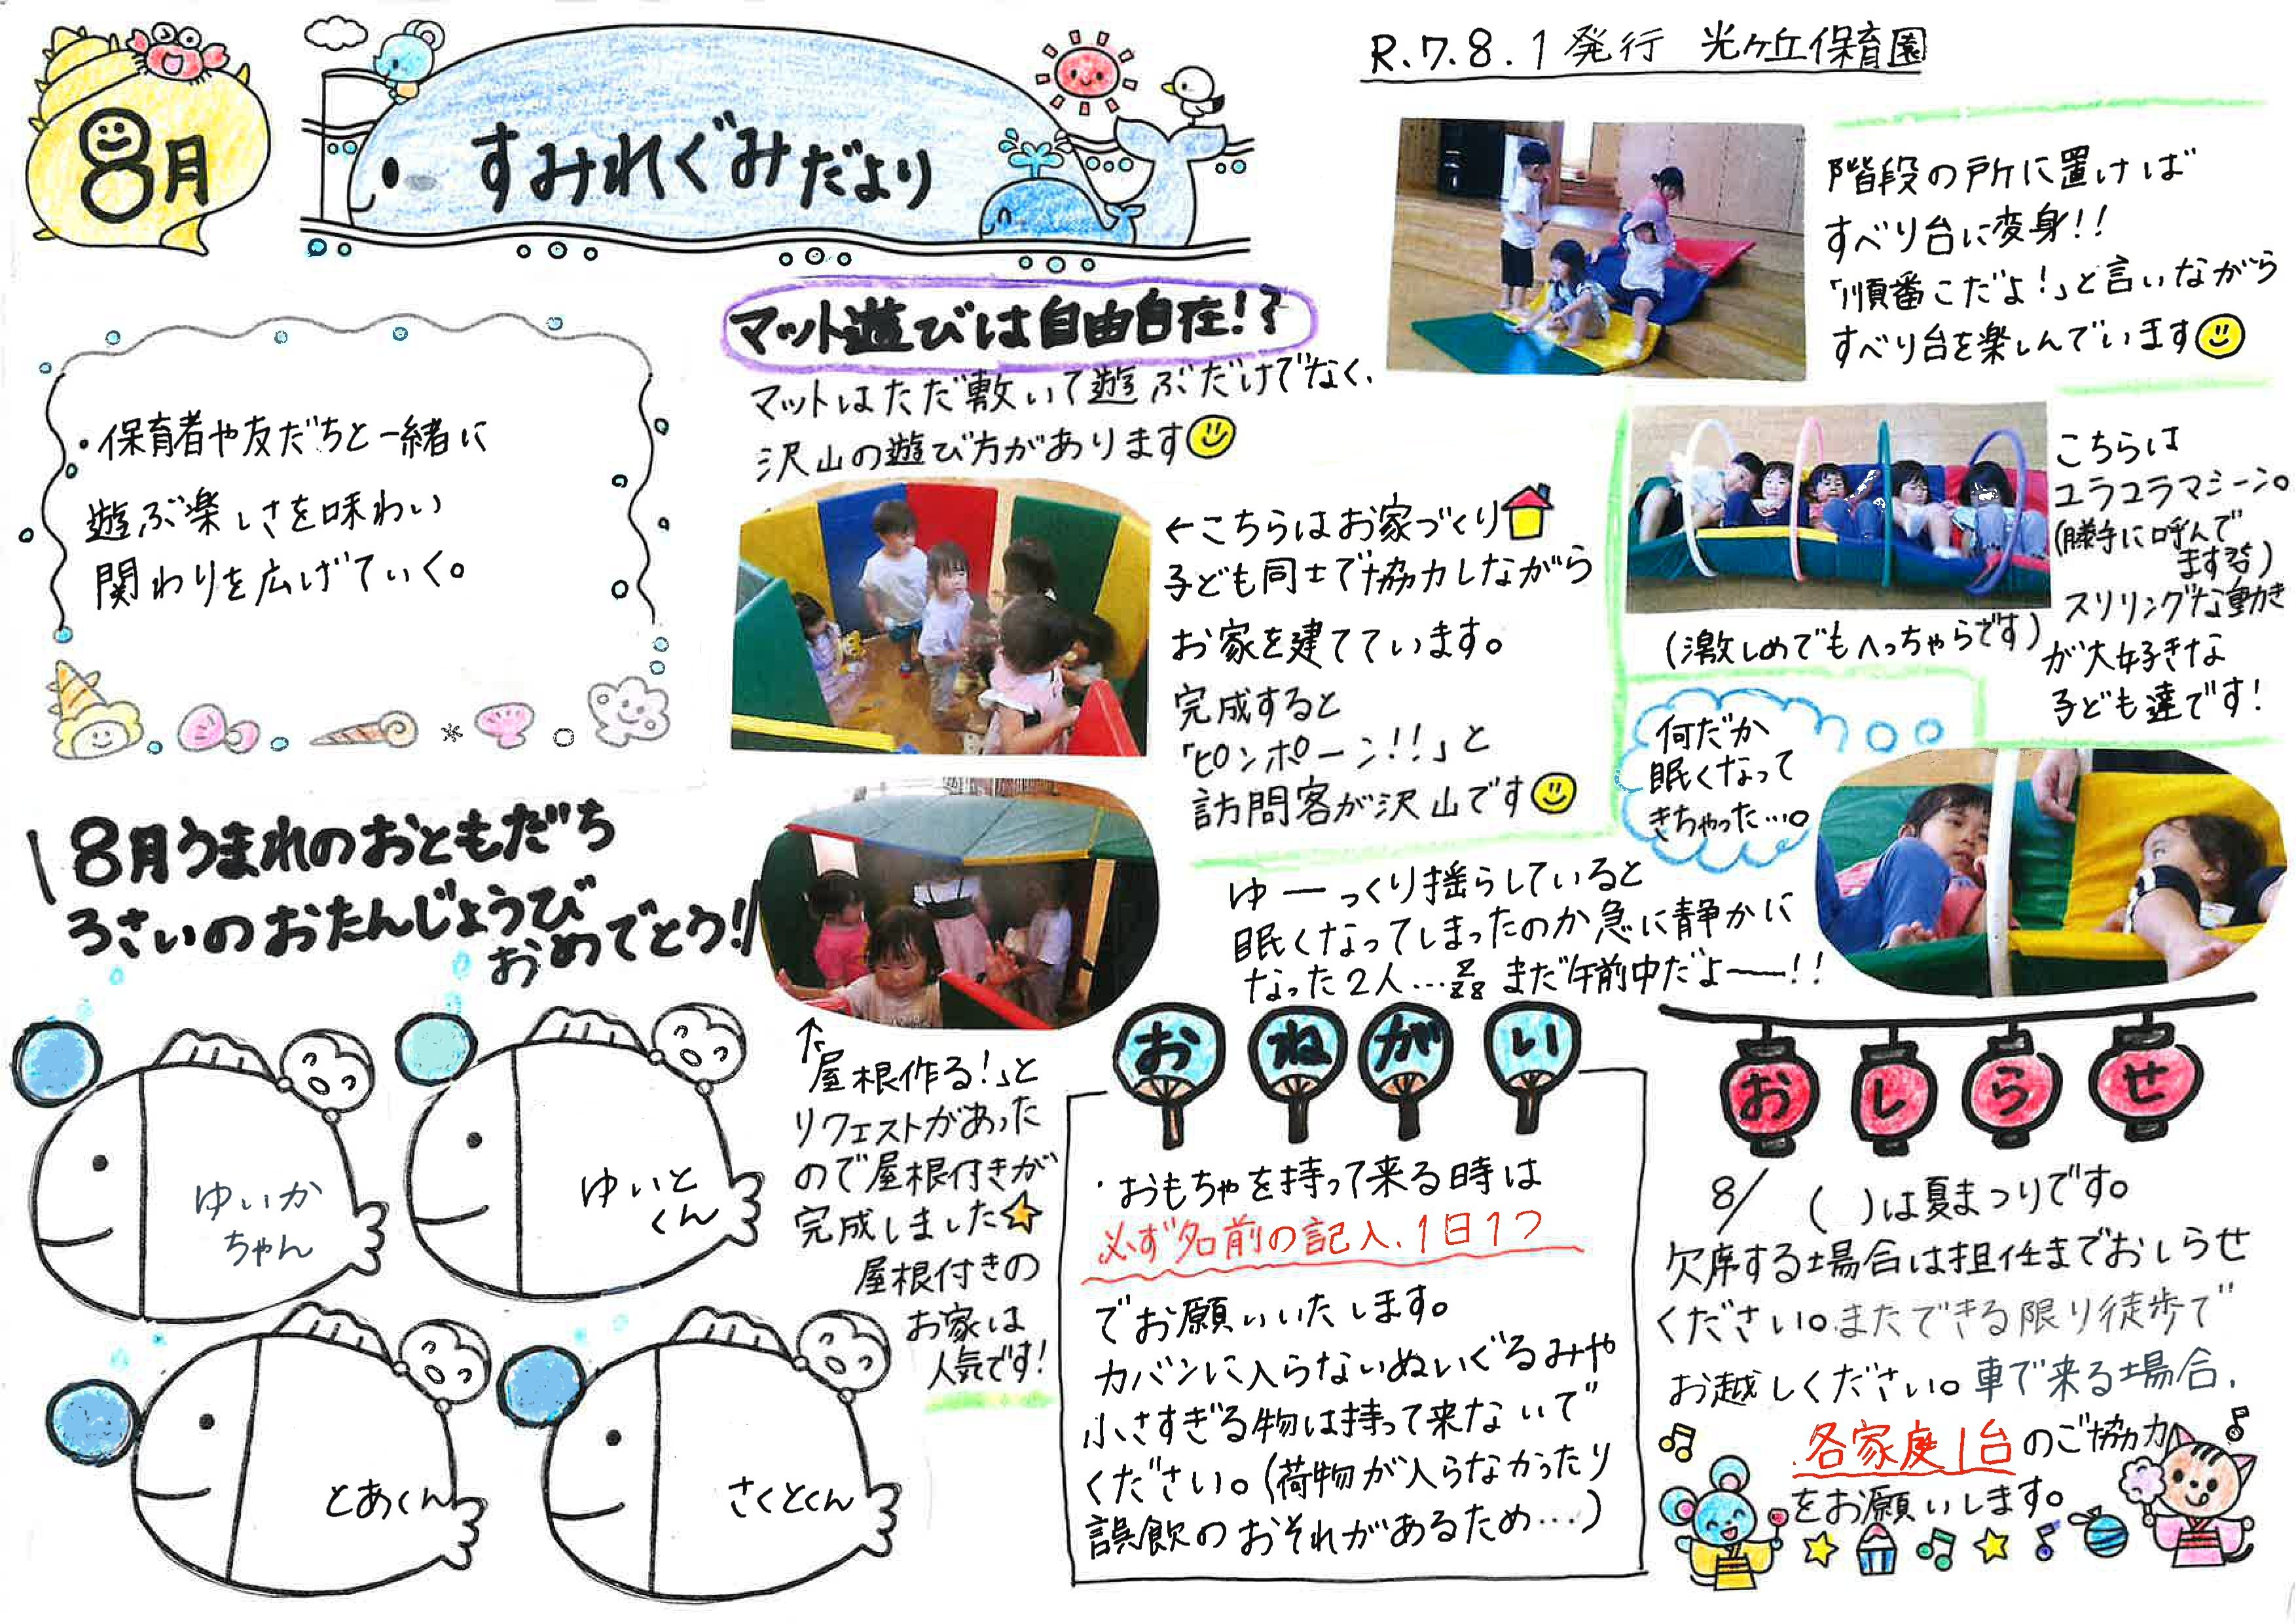 8月
すみれぐみだより
R.7.8.1発行 光ヶ丘保育園
・保育者や友だちと一緒に
遊ぶ楽しさを味わい
関わりを広げていく。
マット遊びは自由自在!?
マットはただ敷いて遊ぶだけでなく、
沢山の遊び方があります
←こちらはお家づくり
子ども同士で協力しながら
お家を建てています。
完成すると
「ピンポーン!!」と
訪問客が沢山です
階段の所に置けば
すべり台に変身!!
「順番こだよ!」と言いながら
すべり台を楽しんでいます
こちらは
ユラユラマシーン。
(勝手に呼んで
ます)
スリリングな動き
が大好きな
子ども達です!
(激しめでもへっちゃらです)
何だか
眠くなって
きちゃった…。
ゆーっくり揺らしていると
眠くなってしまったのか急に静かに
なった2人…zzz まだ午前中だよー!!
8月うまれのおともだち
3さいのおたんじょうび
おめでとう!!
ゆいか
ちゃん
ゆいと
くん
とあくん
さくとくん
↑「屋根作る!」と
リクエストがあった
ので屋根付きが
完成しました☆
屋根付きの
お家は
人気です!
おねがい
・おもちゃを持って来る時は
必ず名前の記入、1日1つ
でお願いいたします。
カバンに入らないぬいぐるみや
小さすぎる物は持って来ないで
ください。(荷物が入らなかったり
誤飲のおそれがあるため…)
おしらせ
8/ ( )は夏まつりです。
欠席する場合は担任までおしらせ
ください。またできる限り徒歩で
お越しください。車で来る場合、
各家庭1台のご協力
をお願いします。